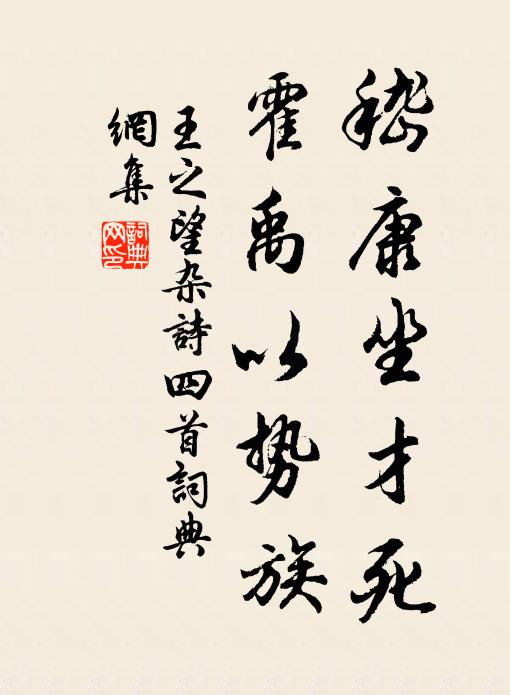 嵇康坐才死
霍禹以势族
王之望杂詩四首詞典
網集
詞典网印